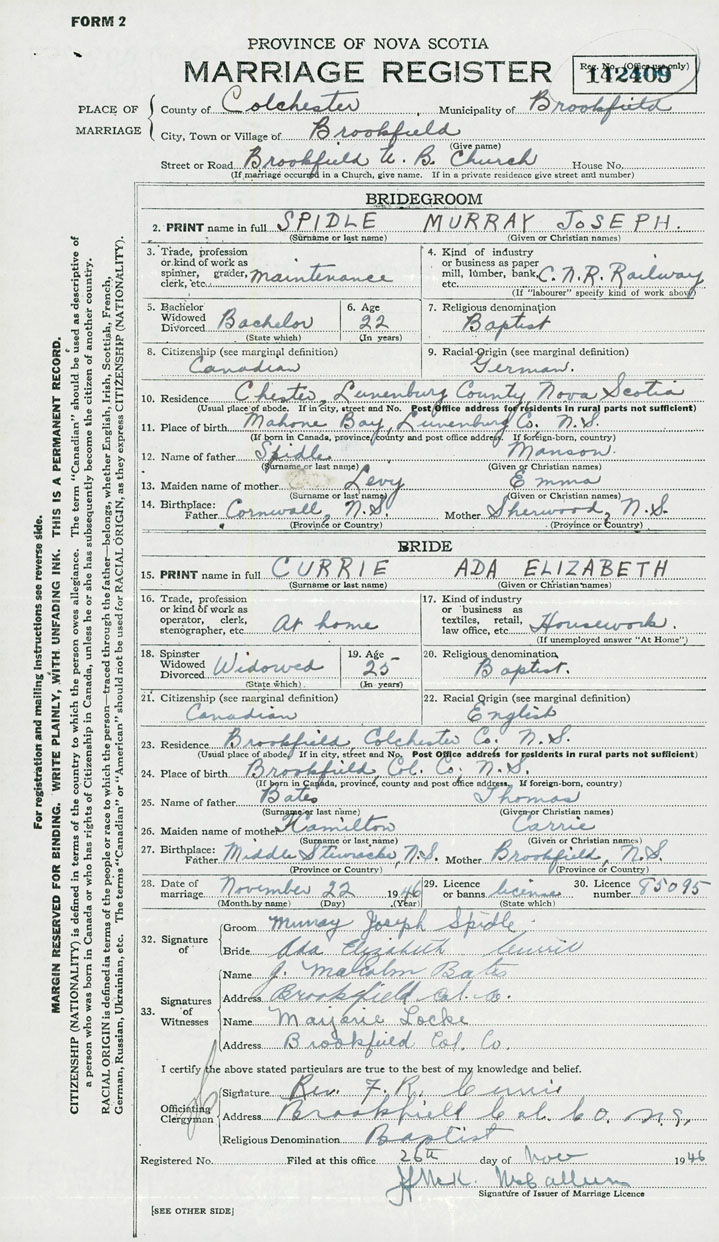 FORM 2
PROVINCE OF NOVA SCOTIA
MARRIAGE REGISTER
Reg. No. (Office use only)
142409
PLACE OF MARRIAGE
County of Colchester, Municipality of Brookfield
City, Town or Village of Brookfield
(Give name)
Street or Road Brookfield U. B. Church House No.
(If marriage occurred in a Church, give name. If in a private residence give street and number)
BRIDEGROOM
2. PRINT name in full SPIDLE MURRAY JOSEPH.
(Surname or last name) (Given or Christian names)
3. Trade, profession or kind of work as spinner, grader, clerk, etc. maintenance
4. Kind of industry or business as paper mill, lumber, bank, etc. C.N.R. Railway
(If "labourer" specify kind of work above)
5. Bachelor Widowed Divorced Bachelor
(State which)
6. Age 22
(In years)
7. Religious denomination
Baptist
8. Citizenship (see marginal definition)
Canadian
9. Racial Origin (see marginal definition)
German.
10. Residence Chester, Lunenburg County, Nova Scotia
(Usual place of abode. If in city, street and No. Post Office address for residents in rural parts not sufficient)
11. Place of birth Mahone Bay, Lunenburg Co. N.S.
(If born in Canada, province, county and post office address. If foreign-born, country)
12. Name of father Spidle Manson.
(Surname or last name) (Given or Christian names)
13. Maiden name of mother Levy Emma
(Surname or last name) (Given or Christian names)
14. Birthplace: Father Cornwall, N.S. Mother Sherwood, N.S.
(Province or Country) (Province or Country)
BRIDE
15. PRINT name in full CURRIE ADA ELIZABETH
(Surname or last name) (Given or Christian names)
16. Trade, profession or kind of work as operator, clerk, stenographer, etc. At home
17. Kind of industry or business as textiles, retail, law office, etc. Housework.
(If unemployed answer "At Home")
18. Spinster Widowed Divorced Widowed
(State which)
19. Age 25
(In years)
20. Religious denomination
Baptist.
21. Citizenship (see marginal definition)
Canadian
22. Racial Origin (see marginal definition)
English
23. Residence Brookfield Colchester Co. N.S.
(Usual place of abode. If in city, street and No. Post Office address for residents in rural parts not sufficient)
24. Place of birth Brookfield Col. Co. N.S.
(If born in Canada, province, county and post office address. If foreign-born, country)
25. Name of father Bates Thomas
(Surname or last name) (Given or Christian names)
26. Maiden name of mother Hamilton Carrie
(Surname or last name) (Given or Christian names)
27. Birthplace: Father Middle Stewiacke, N.S. Mother Brookfield, N.S.
(Province or Country) (Province or Country)
28. Date of marriage November 22 1946
(Month by name) (Day) (Year)
29. Licence or banns license
(State which)
30. Licence number 85095
32. Signature of
Groom Murray Joseph Spidle
Bride Ada Elizabeth Currie
33. Signatures of Witnesses
Name J. Malcolm Bates
Address Brookfield Col. Co.
Name Marjorie Locke
Address Brookfield Col. Co.
I certify the above stated particulars are true to the best of my knowledge and belief.
Officiating Clergyman
Signature Rev. F. R.
Address Brookfield Col. Co. N.S.
Religious Denomination Baptist
Registered No. Filed at this office 26th day of Nov 1946
McCallum
Signature of Issuer of Marriage Licence
[SEE OTHER SIDE]
For registration and mailing instructions see reverse side.
MARGIN RESERVED FOR BINDING. WRITE PLAINLY, WITH UNFADING INK. THIS IS A PERMANENT RECORD.
CITIZENSHIP (NATIONALITY) is defined in terms of the country to which the person owes allegiance. The term "Canadian" should be used as descriptive of
a person who was born in Canada or who has rights of Citizenship in Canada, unless he or she has subsequently become the citizen of another country.
RACIAL ORIGIN is defined in terms of the people or race to which the person—traced through the father—belongs, whether English, Irish, Scottish, French,
German, Russian, Ukrainian, etc. The terms "Canadian" or "American" should not be used for RACIAL ORIGIN, as they express CITIZENSHIP (NATIONALITY).